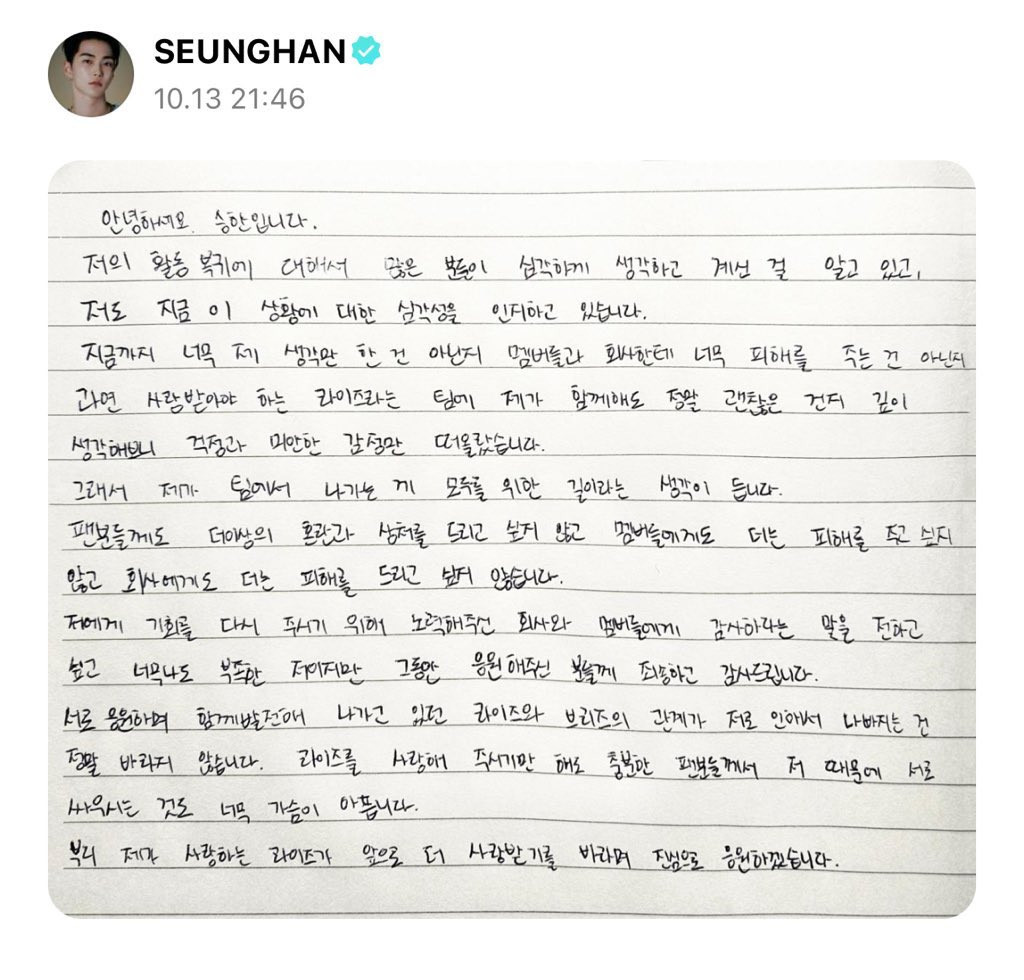 SEUNGHAN
10.13 21:46
안녕하세요. 승한입니다.
저의 활동 복귀에 대해서 많은 분들이 심각하게 생각하고 계신 걸 알고 있고,
저도 지금 이 상황에 대한 심각성을 인지하고 있습니다.
지금까지 너무 제 생각만 한 건 아닌지 멤버들과 회사한테 너무 피해를 주는 건 아닌지
과연 사랑받아야 하는 라이즈라는 팀에 제가 함께해도 정말 괜찮은 건지 깊이
생각해보니 걱정과 미안한 감정만 떠올랐습니다.
그래서 제가 팀에서 나가는 게 모두를 위한 길이라는 생각이 듭니다.
팬분들께도 더이상의 혼란과 상처를 드리고 싶지 않고 멤버들에게도 더는 피해를 주고 싶지
않고 회사에게도 더는 피해를 드리고 싶지 않습니다.
저에게 기회를 다시 주시기 위해 노력해주신 회사와 멤버들에게 감사하다는 말을 전하고
싶고 너무나도 부족한 저이지만 그동안 응원해주신 분들께 죄송하고 감사드립니다.
서로 응원하며 함께발전해 나가고 있던 라이즈와 브리즈의 관계가 저로 인해서 나빠지는 건
정말 바라지 않습니다. 라이즈를 사랑해 주시기만 해도 충분한 팬분들께서 저 때문에 서로
싸우시는 것도 너무 가슴이 아픕니다.
부디 제가 사랑하는 라이즈가 앞으로 더 사랑받기를 바라며 진심으로 응원하겠습니다.